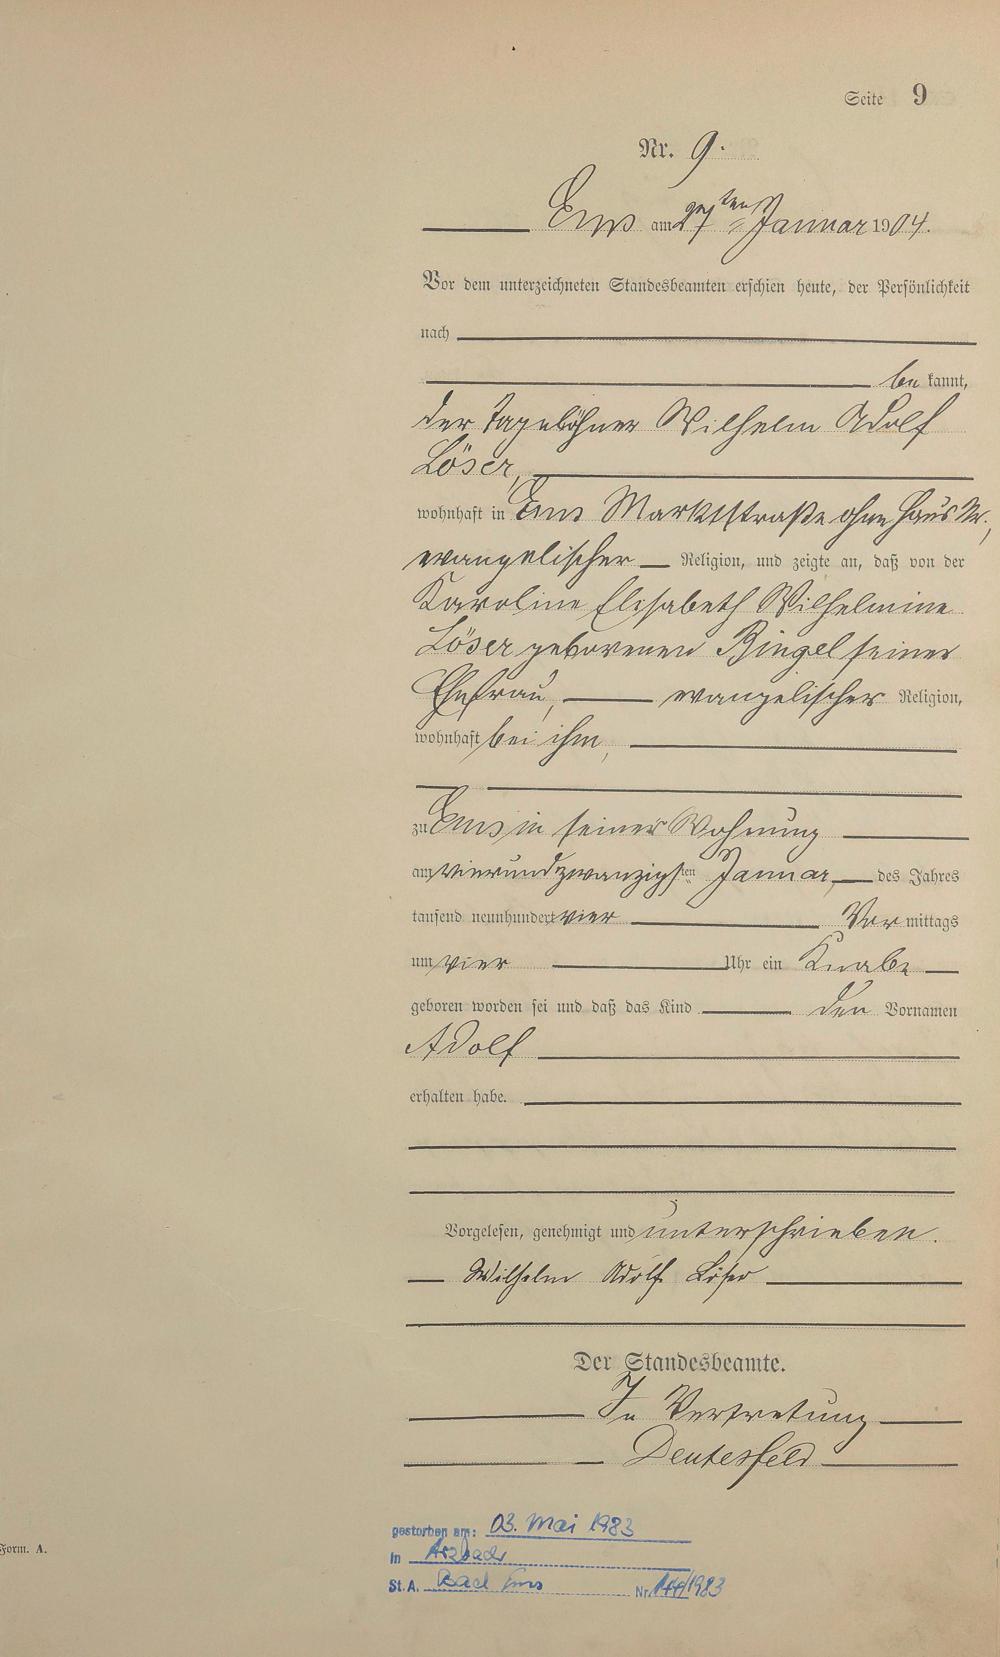 Seite 9
Nr. 9.
Ems am 27ten Januar 1904.
Vor dem unterzeichneten Standesbeamten erschien heute, der Persönlichkeit
nach
be kannt,
der Tagelöhner Wilhelm Adolf
Löser,
wohnhaft in Ems Marktstraße ohne Haus Nr.,
evangelischer Religion, und zeigte an, daß von der
Karoline Elisabeth Wilhelmine
Löser geborenen Bingel seiner
Ehefrau, evangelischer Religion,
wohnhaft bei ihm,
zu Ems in seiner Wohnung
am vierundzwanzigsten Januar, des Jahres
tausend neunhundert vier Vor mittags
um vier Uhr ein Knabe
geboren worden sei und daß das Kind den Vornamen
Adolf
erhalten habe.
Vorgelesen, genehmigt und unterschrieben.
Wilhelm Adolf Löser
Der Standesbeamte.
In Vertretung
Deutesfeld
gestorben am: 03. Mai 1983
in Arzbach
St.A. Bad Ems Nr. 144/1983
Form. A.